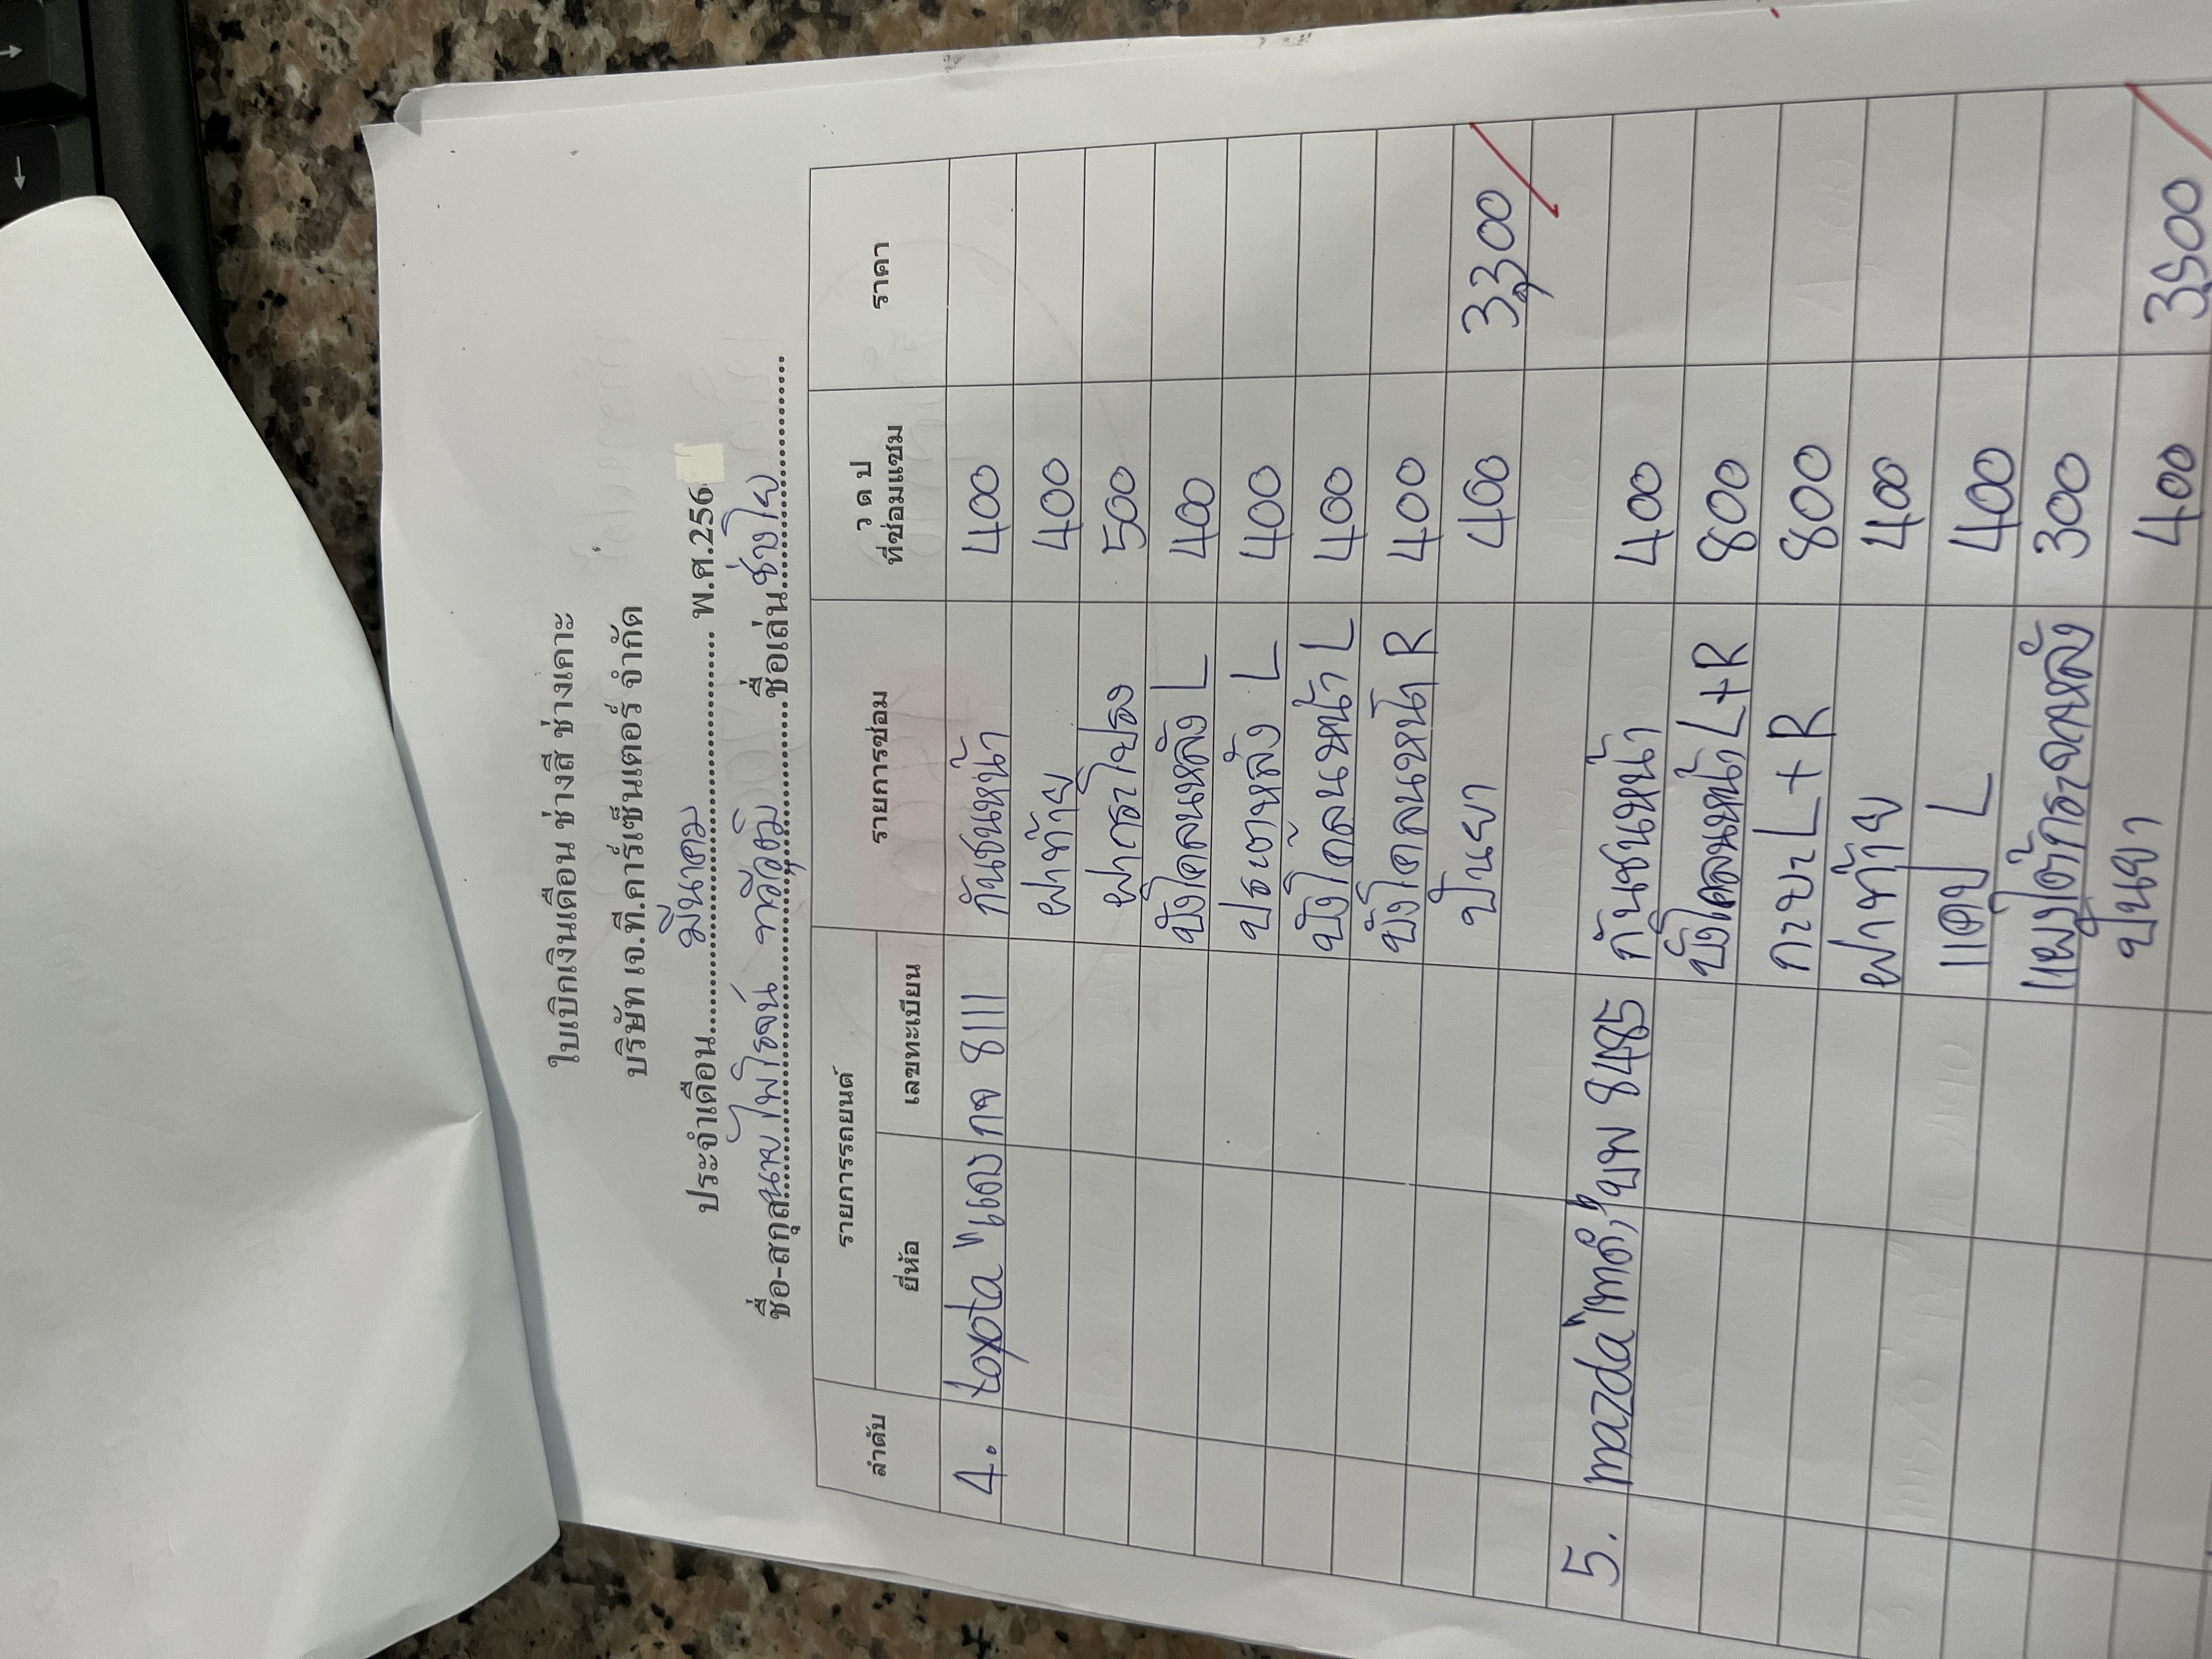 ใบเบิกเงินเดือน ช่างสี ช่างเคาะ
บริษัท เจ.ที.คาร์เซ็นเตอร์ จำกัด
ประจำเดือน มีนาคม พ.ศ.256
ชื่อ-สกุล นาย ไพโรจน์ ชื่อเล่น ช่างไข
ลำดับ รายการรถยนต์ รายการซ่อม ว ด ป ที่ซ่อมแซม ราคา
ยี่ห้อ เลขทะเบียน
4. toyota "แดง" กจ 8111 กันชนหน้า 400
ฝาท้าย 400
ฝากระโปรง 500
บังโคลนหลัง L 400
ประตูหลัง L 400
บังโคลนหน้า L 400
บังโคลนหน้า R 400
ปั่นยา 400 3,300
5. mazda "เทาดำ" บพ 8485 กันชนหน้า 400
บังโคลนหน้า L+R 800
กะบะ L+R 800
ฝาท้าย 400
แคป L 400
แผงใต้กระจกหลัง 300
ปั่นยา 400 3,500